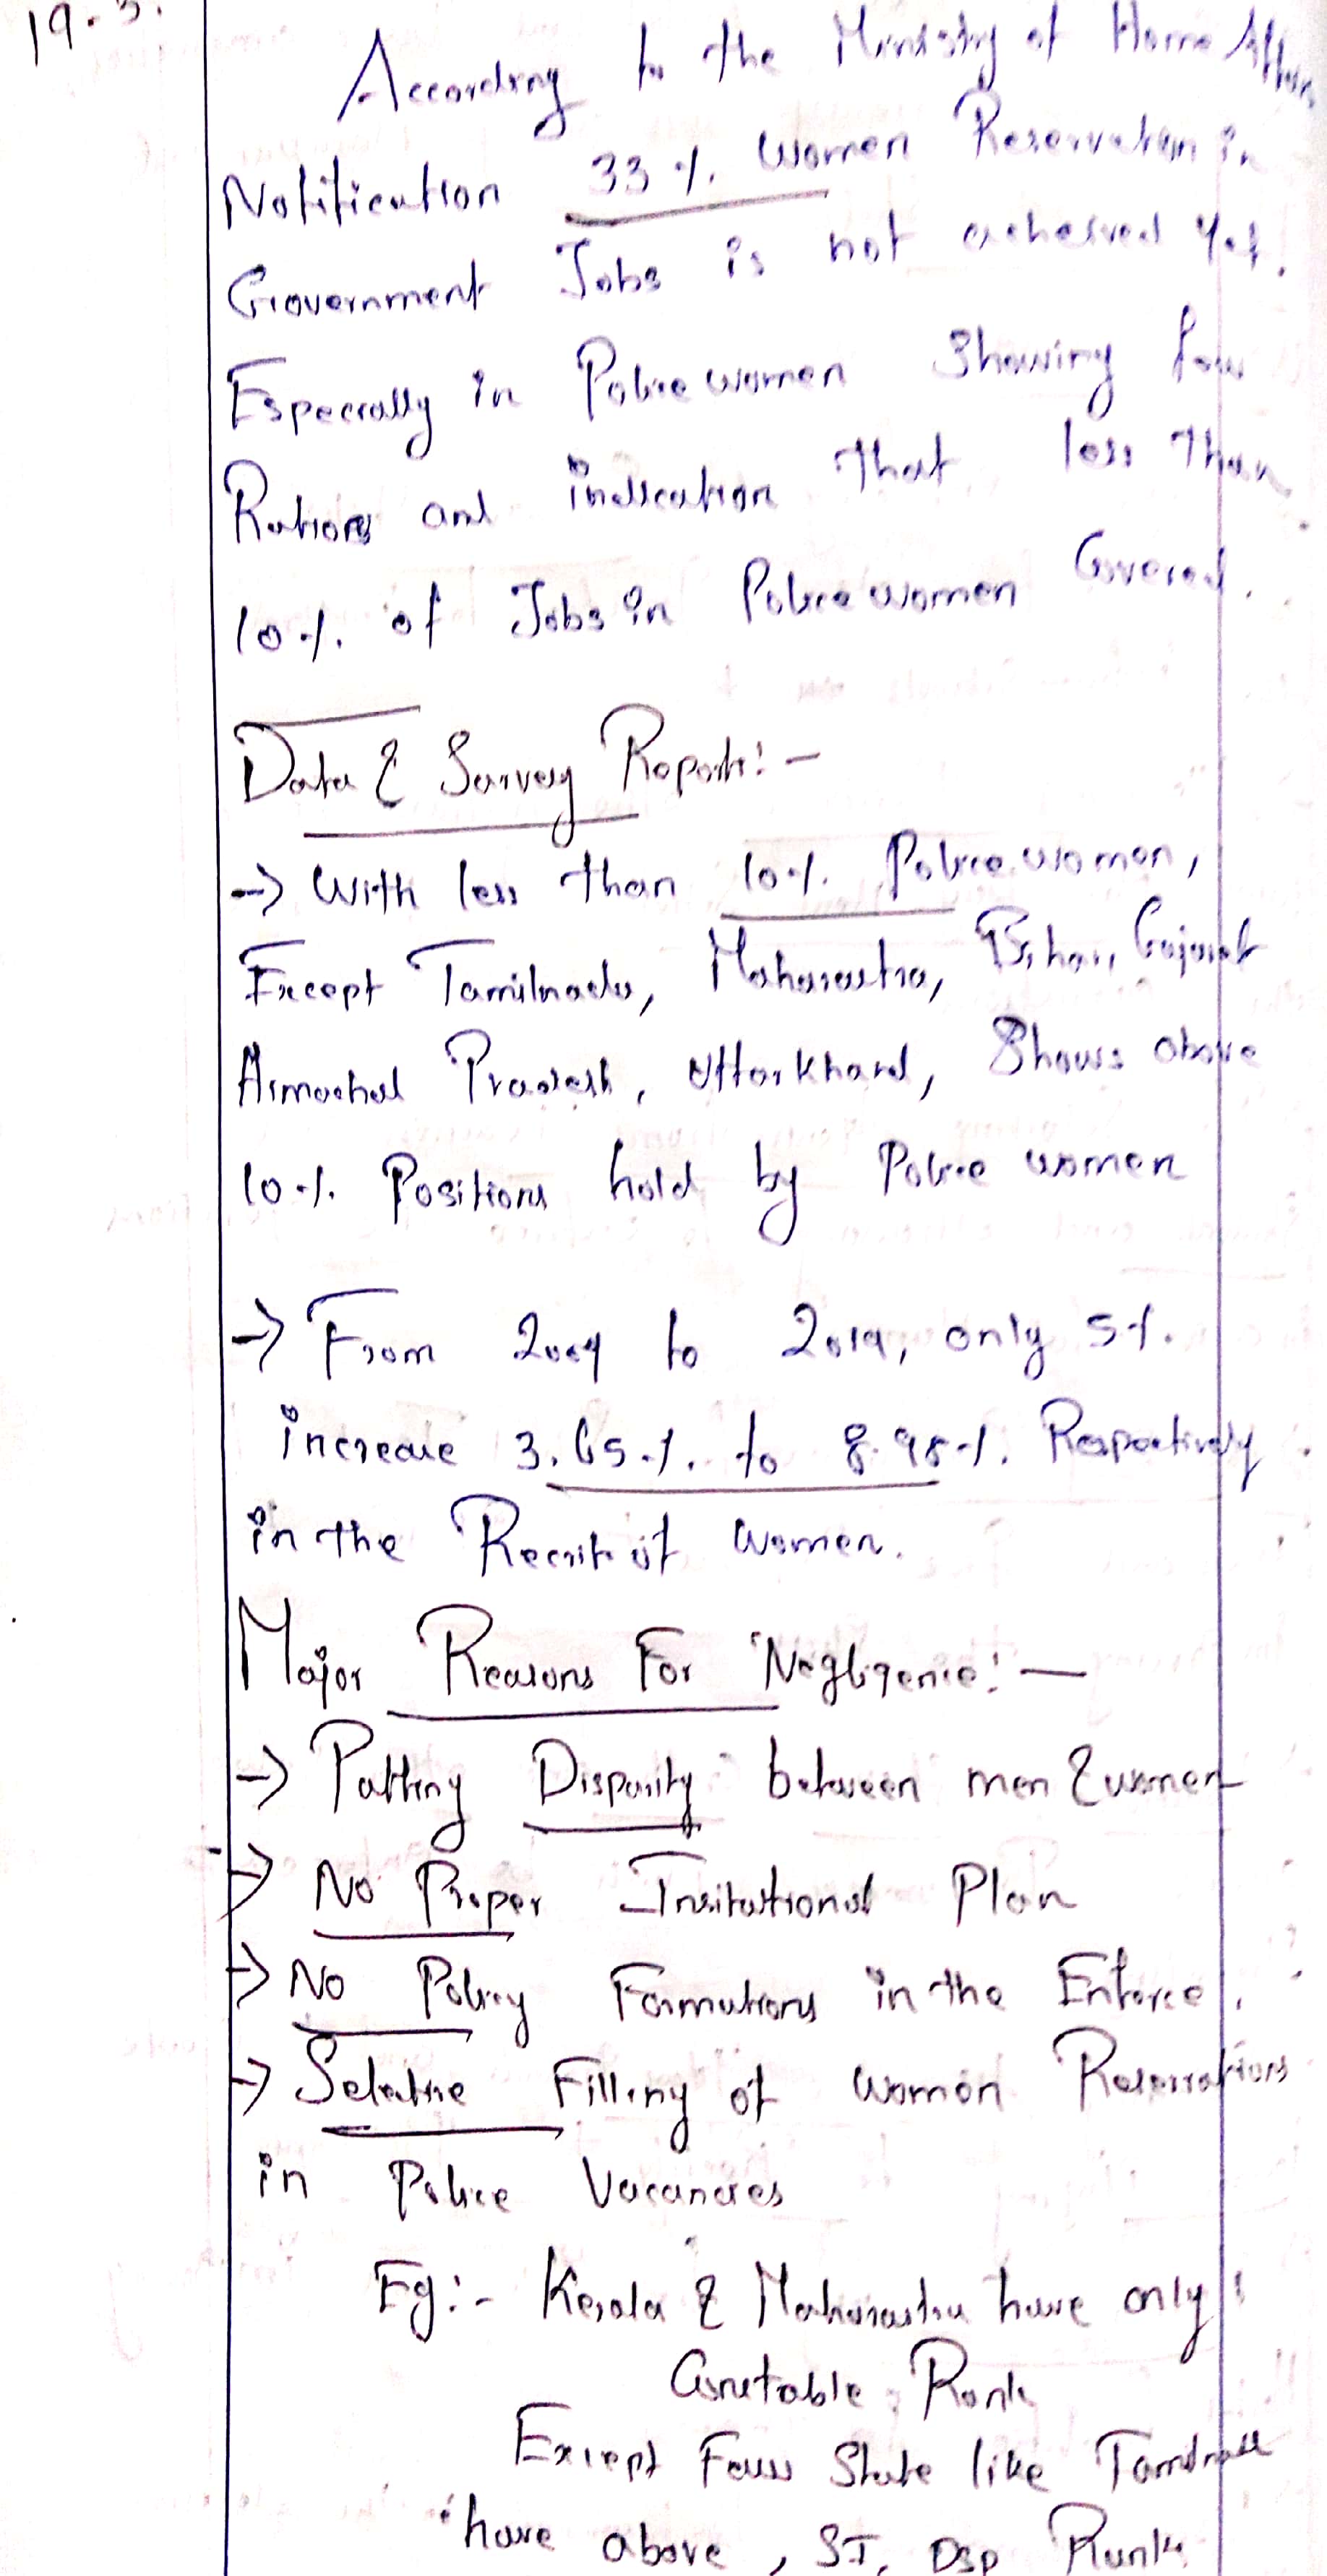 19.3.
According to the Ministry of Home Affairs
Notification 33 %. Women Reservation in
Government Jobs is not acheived yet.
Especially in Police women showing few
Rations and indication that less than
10 %. of Jobs in Police women Covered.
Data & Survey Report:-
-> With less than 10 %. Police women,
Except Tamilnadu, Maharastra, Bihar, Gujarat
Himachal Pradesh, Uttarkhand, Shows above
10 %. Positions hold by Police women
-> From 2009 to 2019, only 5 %.
increase 3.65 %. to 8.98 %. Respectively
in the Recruit of women.
Major Reasons For Negligence:-
-> Putting Disparity between men & women
-> No Proper Insitutional Plan
-> No Policy Formations in the Enforce.
-> Selective Filling of women Reservations
in Police Vacancies
Eg:- Kerala & Maharastra have only
Constable Rank
Except Few State like Tamilnadu
have above, SI, DSP Ranks